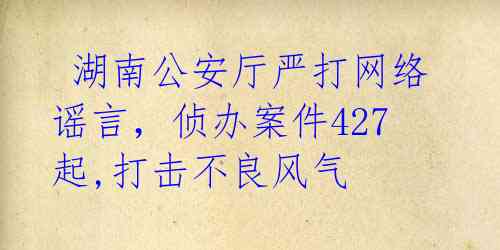 湖南公安厅严打网络
谣言，侦办案件427
起,打击不良风气